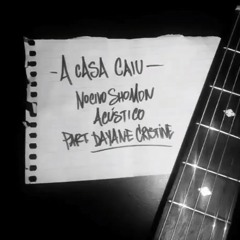 - A CASA CAIU -
NOCIVO SHOMON
ACÚSTICO
PART DAYANE CRISTINE